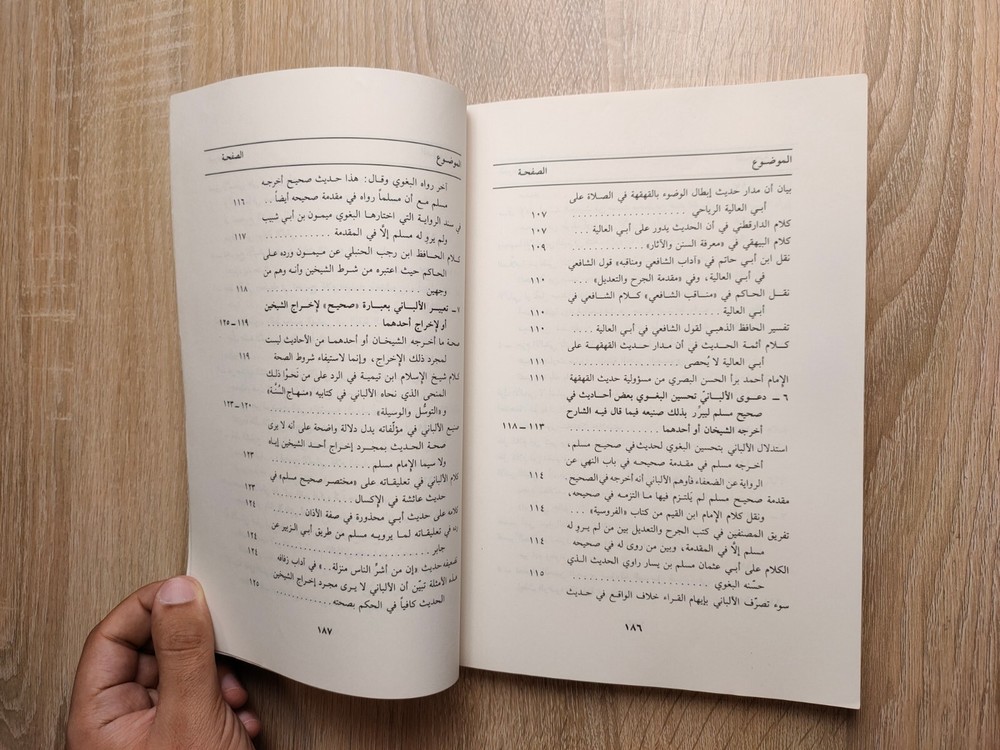 الموضوع الصفحة
بيان أن مدار حديث إبطال الوضوء بالقهقهة في الصلاة على
أبي العالية الرياحي . . . . . . . . . . . . . . . . ١٠٧
كلام الدارقطني في أن الحديث يدور على أبي العالية . . . ١٠٧
كلام البيهقي في «معرفة السنن والآثار» . . . . . . . . . . ١٠٩
نقل ابن أبي حاتم في «آداب الشافعي ومناقبه» قول الشافعي
في أبي العالية، وفي «مقدمة الجرح والتعديل» . . . ١١٠
نقل الحاكم في «مناقب الشافعي» كلام الشافعي في
أبي العالية . . . . . . . . . . . . . . . . . . . . . ١١٠
تفسير الحافظ الذهبي لقول الشافعي في أبي العالية . . . . ١١٠
كلام أئمة الحديث في أن مدار حديث القهقهة على
أبي العالية لا يُحصى . . . . . . . . . . . . . . . . ١١١
الإمام أحمد برأ الحسن البصري من مسؤولية حديث القهقهة ١١١
٦ - دعوى الألبانيّ تحسين البغوي بعض أحاديث في
صحيح مسلم ليبرِّر بذلك صنيعه فيما قال فيه الشارح
أخرجه الشيخان أو أحدهما . . . . . . . . . . . ١١٣ - ١١٨
استدلال الألباني بتحسين البغوي لحديث في صحيح مسلم،
أخرجه مسلم في مقدمة صحيحه في باب النهي عن
الرواية عن الضعفاء فأوهم الألباني أنه أخرجه في الصحيح. ١١٤
مقدمة صحيح مسلم لم يَلتزم فيها ما التزمه في صحيحه،
ونقل كلام الإمام ابن القيم من كتاب «الفروسية» . . . ١١٤
تفريق المصنفين في كتب الجرح والتعديل بين من لم يرو له
مسلم إلّا في المقدمة، وبين من روى له في صحيحه ١١٤
الكلام على أبي عثمان مسلم بن يسار راوي الحديث الذي
حسّنه البغوي . . . . . . . . . . . . . . . . . . . ١١٥
سوء تصرّف الألباني بإيهام القراء خلاف الواقع في حديث
١٨٦
الموضوع الصفحة
آخر رواه البغوي وقال: هذا حديث صحيح أخرجه
مسلم مع أن مسلماً رواه في مقدمة صحيحه أيضاً . . ١١٦
في سند الرواية التي اختارها البغوي ميمون بن أبي شبيب
ولم يرو له مسلم إلّا في المقدمة . . . . . . . . . . . . . ١١٧
كلام الحافظ ابن رجب الحنبلي عن ميمون ورده على
الحاكم حيث اعتبره من شرط الشيخين وأنه وهم من
وجهين . . . . . . . . . . . . . . . . . . . . . . . . ١١٨
تعبير الألباني بعبارة «صحيح» لإخراج الشيخين
أو لإخراج أحدهما . . . . . . . . . . . . . . . . . ١١٩ - ١٢٥
صحة ما أخرجه الشيخان أو أحدهما من الأحاديث ليست
لمجرد ذلك الإخراج، وإنما لاستيفاء شروط الصحة ١١٩
كلام شيخ الإسلام ابن تيمية في الرد على من نَحَوْا ذلك
المنحى الذي نحاه الألباني في كتابيه «منهاج السُّنَّة»
و«التوسُّل والوسيلة» . . . . . . . . . . . . . . . . ١٢٠ - ١٢٣
صنيع الألباني في مؤلّفاته يدل دلالة واضحة على أنه لا يرى
صحة الحديث بمجرد إخراج أحد الشيخين إياه
ولا سيما الإمام مسلم . . . . . . . . . . . . . . . . ١٢٣
كلام الألباني في تعليقاته على «مختصر صحيح مسلم» في
حديث عائشة في الإكسال . . . . . . . . . . . . . . ١٢٣
كلامه على حديث أبي محذورة في صفة الأذان . . . . . . . ١٢٤
في تعليقاته لما يرويه مسلم من طريق أبي الزبير عن
جابر . . . . . . . . . . . . . . . . . . . . . . . . . ١٢٤
تضعيفه حديث «إن من أشرّ الناس منزلة . .» في آداب زفافه ١٢٤
هذه الأمثلة تبيّن أن الألباني لا يرى مجرد إخراج الشيخين
الحديث كافياً في الحكم بصحته . . . . . . . . . . . ١٢٥
١٨٧